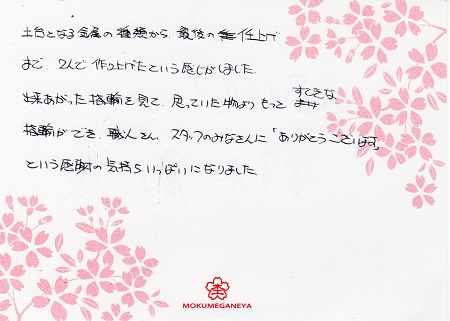 土台となる金属の種類から、最後の仕上げ
まで、2人で作り上げたという感じがしました。
出来あがった指輪を見て、思っていた物よりもっとすてきな
指輪ができ、職人さん、スタッフのみなさんに「ありがとうございます」
という感謝の気持ちいっぱいになりました。
MOKUMEGANEYA